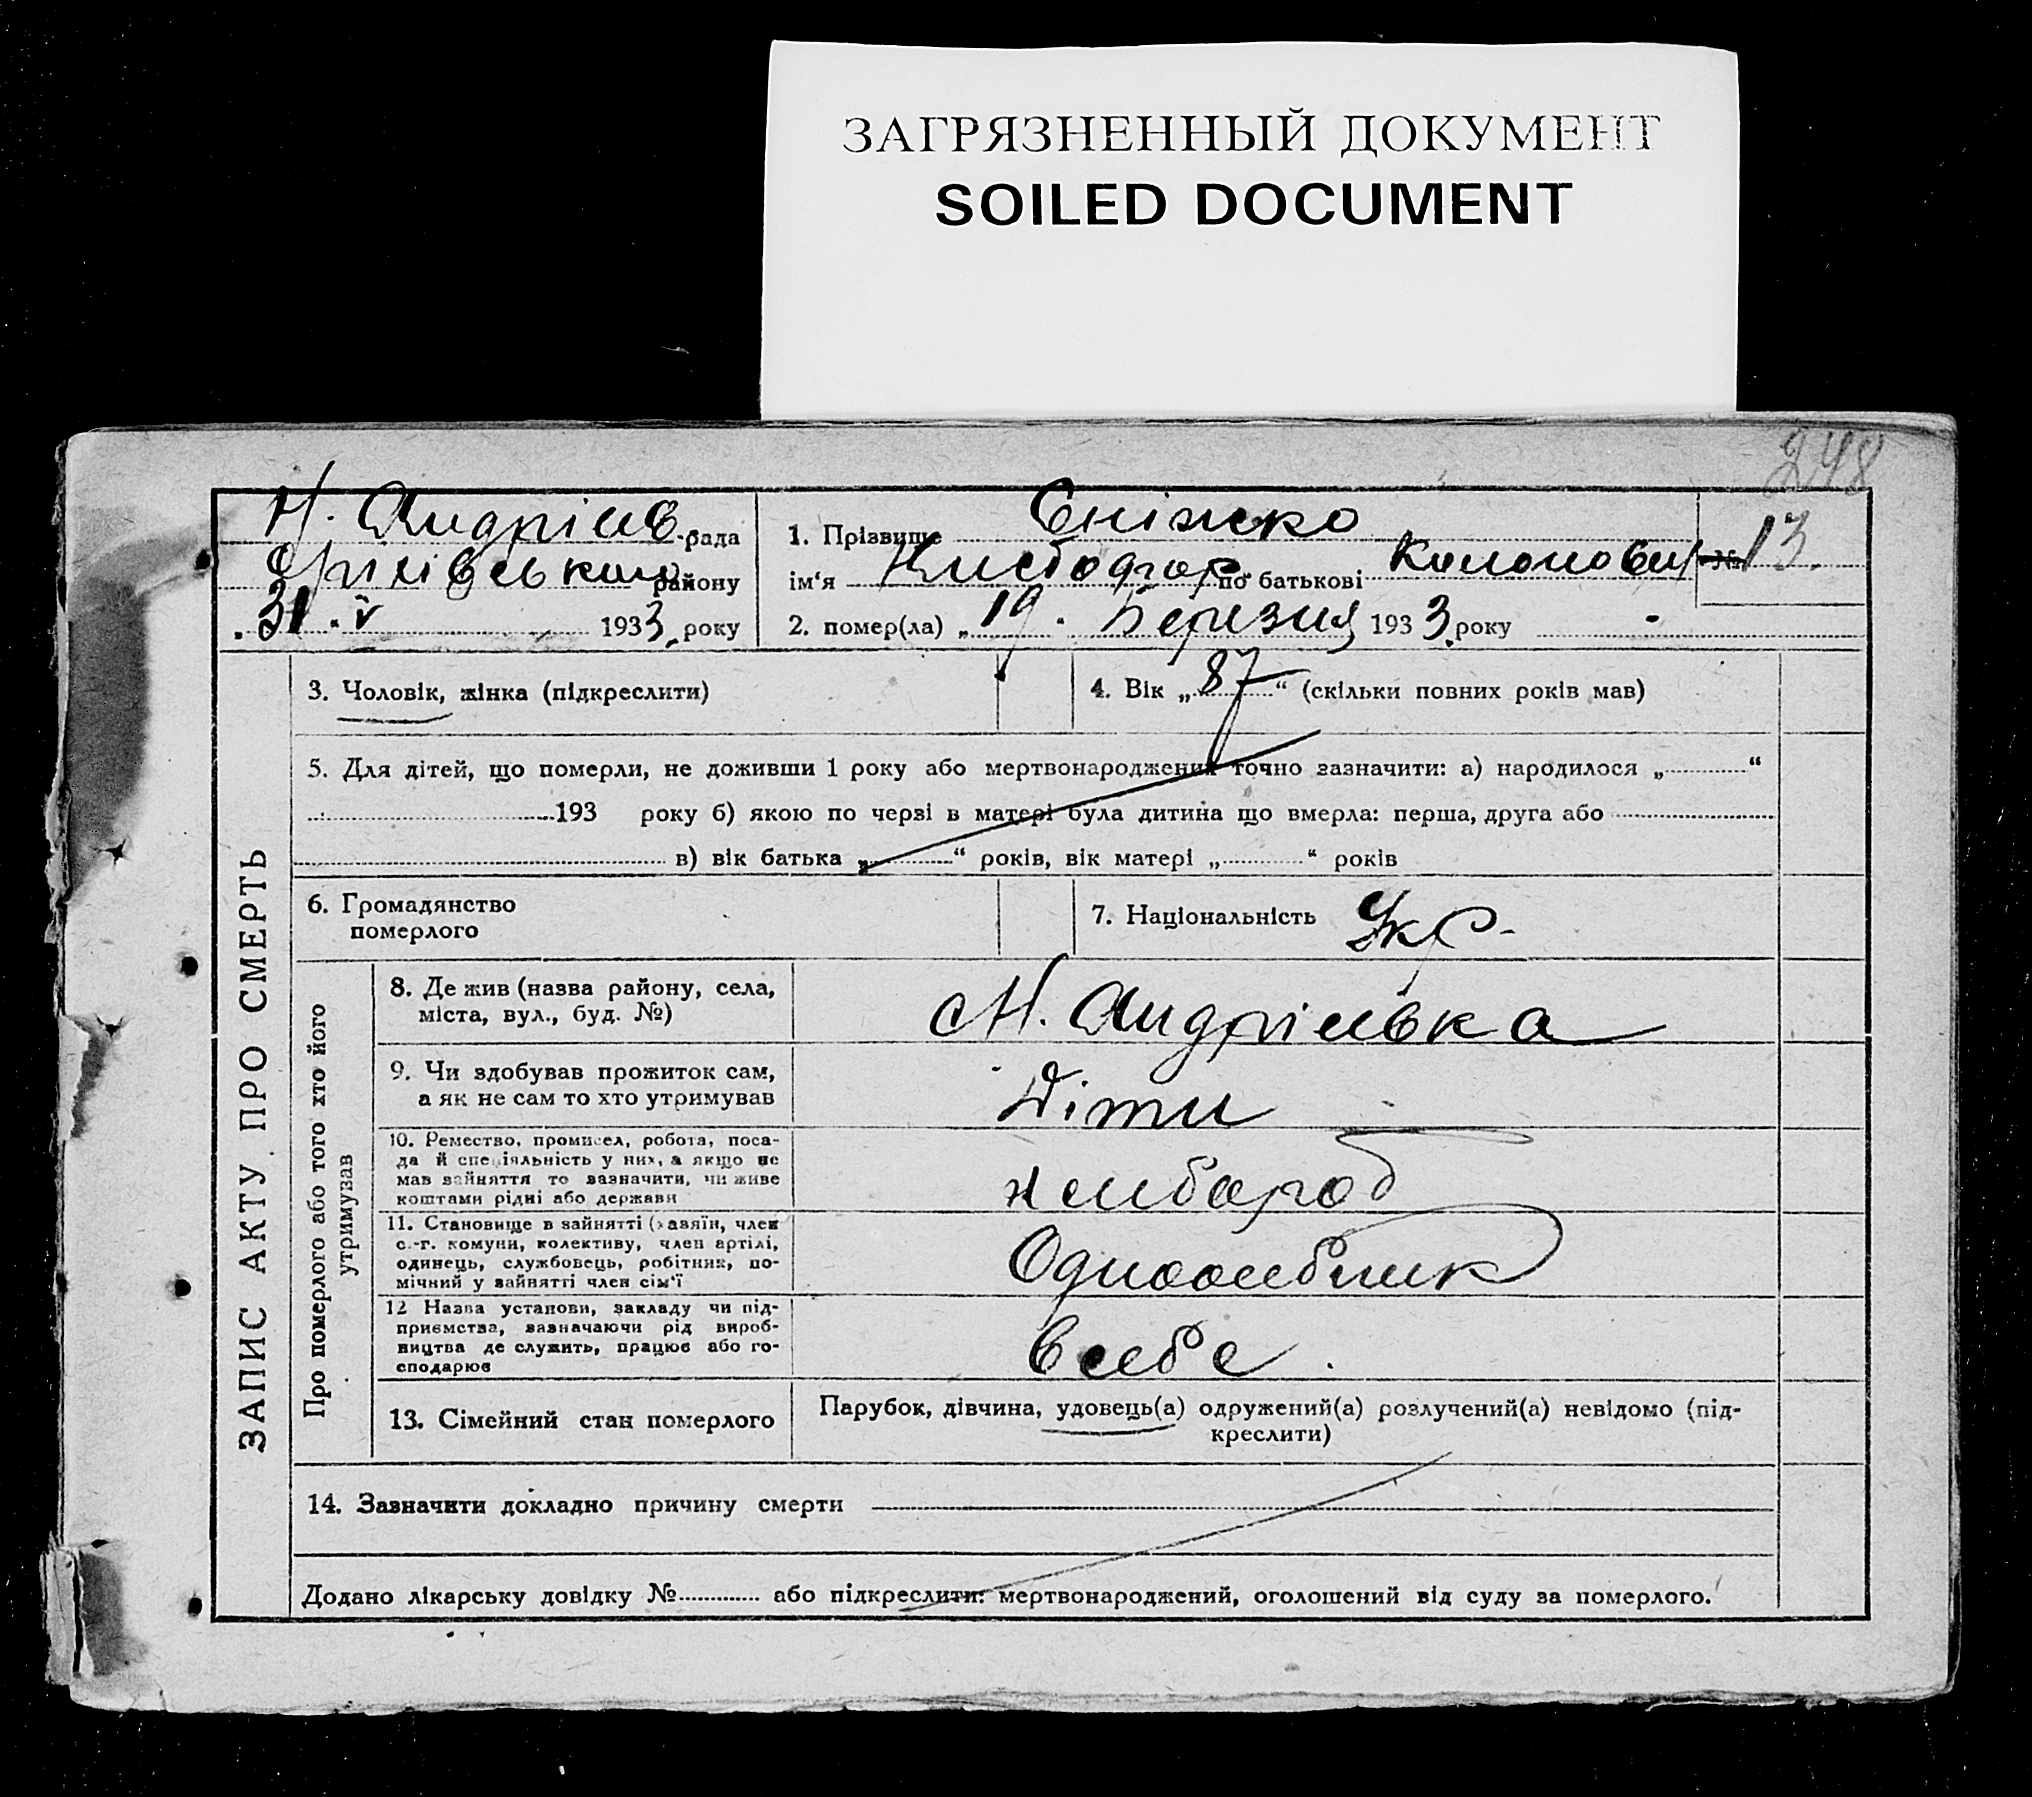 ЗАГРЯЗНЕННЫЙ ДОКУМЕНТ
SOILED DOCUMENT
248
Н. Андріїв. рада
Оріхівського району
31 V 1933 року
1. Прізвище Сніжко
ім‘я по батькові
№ 13.
2. помер(ла) „19 Березня 1933 року
ЗАПИС АКТУ ПРО СМЕРТЬ
3. Чоловік, жінка (підкреслити)
4. Вік „87“ (скільки повних років мав)
5. Для дітей, що померли, не доживши 1 року або мертвонароджених точно зазначити: а) народилося „ “
193 року б) якою по черзі в матері була дитина що вмерла: перша, друга або
в) вік батька „ “ років, вік матері „ “ років
6. Громадянство
померлого
7. Національність Укр.
Про померлого або того хто його
утримував
8. Де жив (назва району, села,
міста, вул., буд. №)
Н. Андріївка
9. Чи здобував прожиток сам,
а як не сам то хто утримував
Діти
10. Ремество, промисел, робота, поса-
да й спеціяльність у них, а якщо не
мав зайняття то зазначити, чи живе
коштами рідні або держави
хлібороб
11. Становище в зайнятті (хазяїн, член
с.-г. комуни, колективу, член артілі,
одинець, службовець, робітник, по-
мічний у зайнятті член сім‘ї
12 Назва установи, закладу чи під-
приємства, зазначаючи рід вироб-
ництва де служить, працює або го-
сподарює
в себе.
13. Сімейний стан померлого
Парубок, дівчина, удовець(а) одружений(а) розлучений(а) невідомо (під-
креслити)
14. Зазначити докладно причину смерти
Додано лікарську довідку № або підкреслити: мертвонароджений, оголошений від суду за померлого.